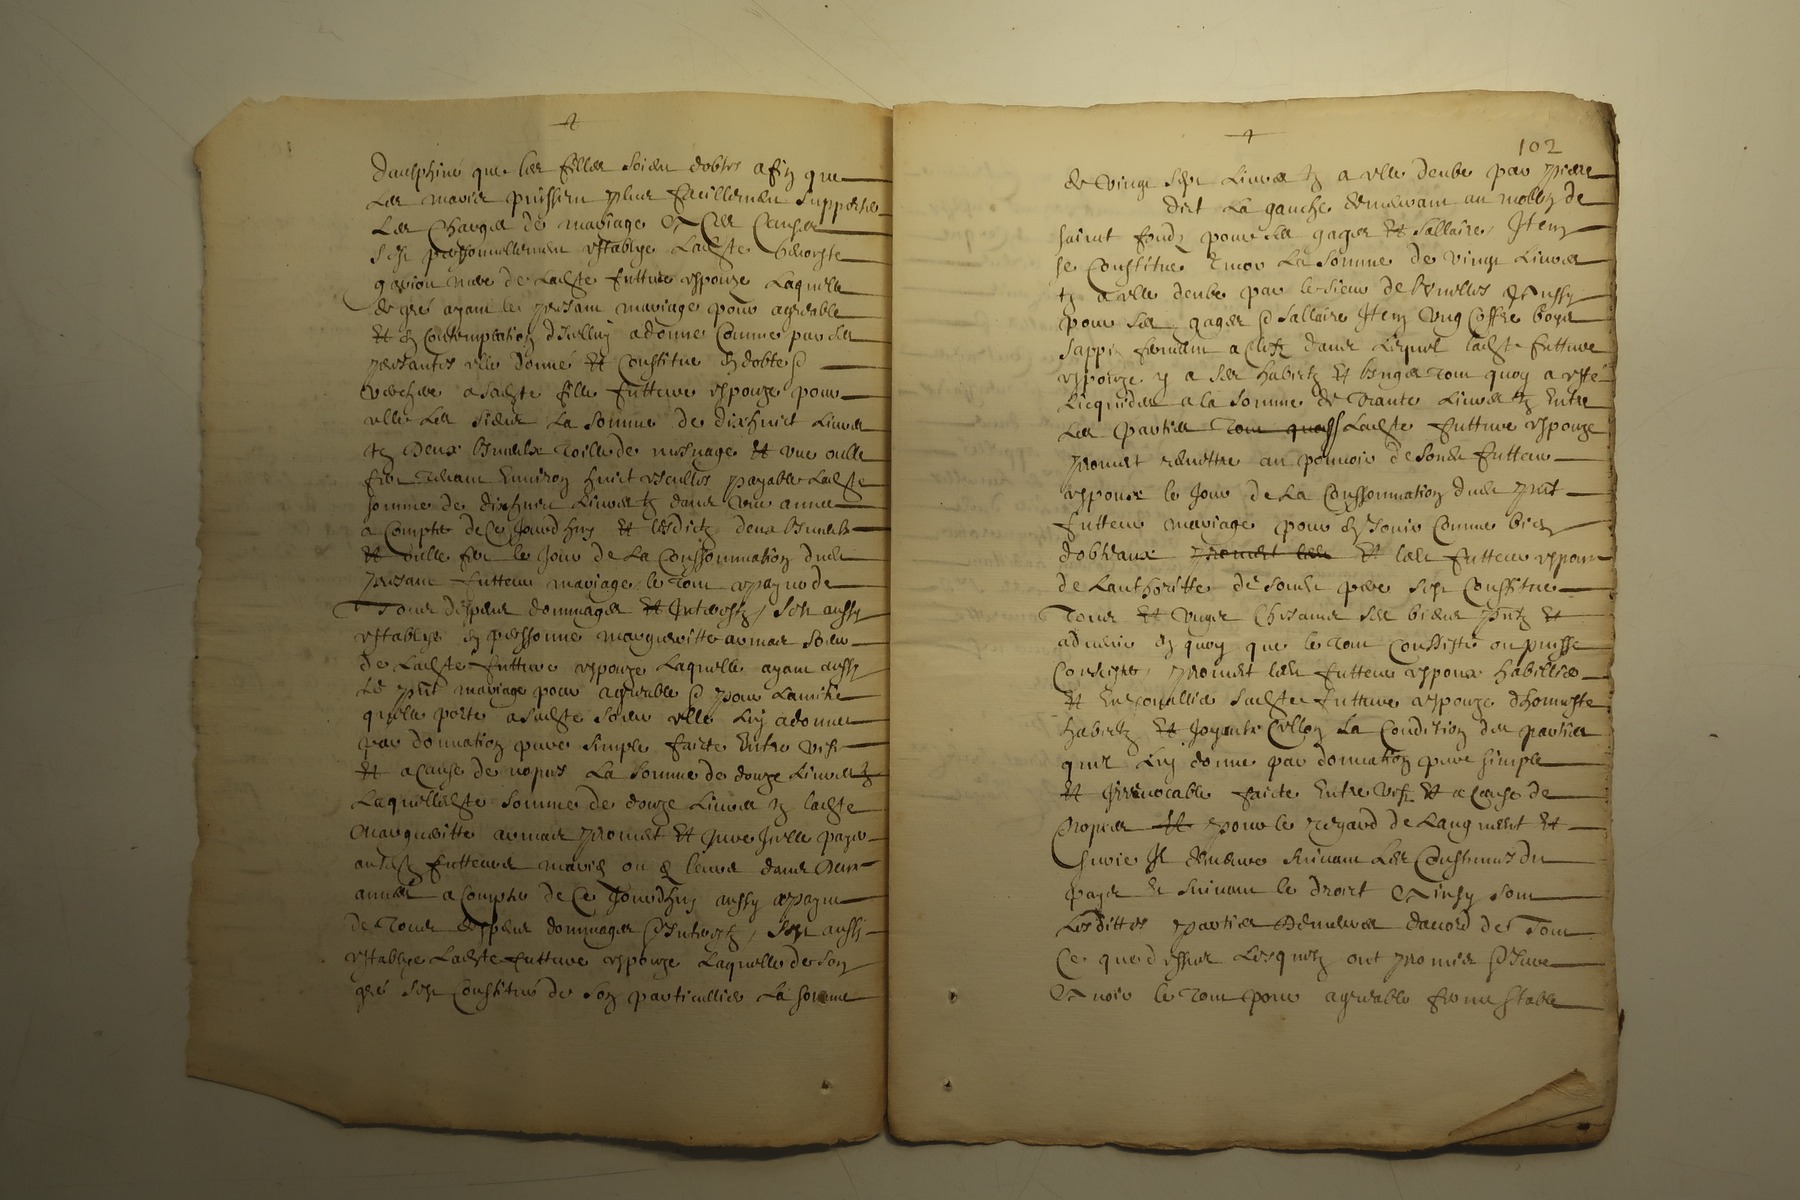 daulphiné que les filles soient dobtes affin que
les maris puissent plus facillement supporter
les charges de mariage Et a Ces Causes
sest personnellement establye ladite
mere de ladite future espouze Laquelle
de gré ayant le presant mariage pour agreable
Et en Contemplation dicelluy a donné Comme par ses
presantes elle donne Et Constitue en dobte et
verchere a sadite fille future espouze pour
elle Les siens La somme de dixhuict Livres
tz deux toille de mesnage Et une oulle
fer tenant Environ huict escuelles payable Ladite
somme de dixhuict Livres tz dans une année
a Compter de Ce Jourdhuy Et lesdictz deux
Et oulle fer le Jour de La Consommation dudit
presant futeur mariage le tout a payne de
Tous despens dommages Et Interestz, Sest aussy
establye en personne margueritte armat soeur
de Ladite future espouze Laquelle ayant aussy
Le present mariage pour agreable et pour Lamitié
quelle porte a sadite soeur elle Luy a donné
par donnation pure simple faicte Entre vifz
Et a Cause de nopces La somme de douze Livres tz
Laquelle dite somme de douze Livres tz ladite
Margueritte armat promet Et Jure Icelle payer
ausditz futeurs mariés ou es leurs dans deux
années a Compter de Ce Jourdhuy aussy a payne
de Tous despens dommages et Interestz, Sest aussi
establye Ladite future espouze Laquelle de son
gré sest Constitué de son particullier La somme
102
de vingt sept Livres tz a elle deube par pierre
dict La gauche demeurant au mollin de
saint pour ses gages Et sallaires, Item
se Constitue Encor La somme de vingt Livres
tz a elle deube par le sieur de aussy
pour ses gages et sallaire Item ung Coffre boys
sappin fermant a Clefz dans Lequel ladite future
espouze y a ses habietz Et linges tout quoy a esté
Licquidé a la somme de trante Livres tz Entre
Les parties tout quoy Ladite future espouze
promet remettre au pouvoir de sondit futeur
espoux le Jour de La Consommation dudit present
futeur mariage pour en Jouir Comme bien
dobtaux promet ledit Et ledit futeur espoux
de Lauthoritté de sondit pere sest Constitué
Tous Et ungs Chescungs ses biens presentz Et
advenir en quoy que le tout Consiste ou puisse
Consister, promet ledit futeur espoux habillier
Et Enjoualler sadite future espouze dhonneste
habietz Et Joyaulx sellon La Condition des parties
quil Luy donne par donnation pure simple
Et Irrevocable faicte Entre vifz Et a Cause de
Nopces Et pour le regard de Laugment Et
survie Il demeure suivant Les Coustumes du
pays Et suivant le droict Et Ainsy sont
Lesdittes parties demeurées daccord de Tout
Ce que dessus Lesquelz ont promis et Juré
Et avoir le tout pour agreable ferme stable